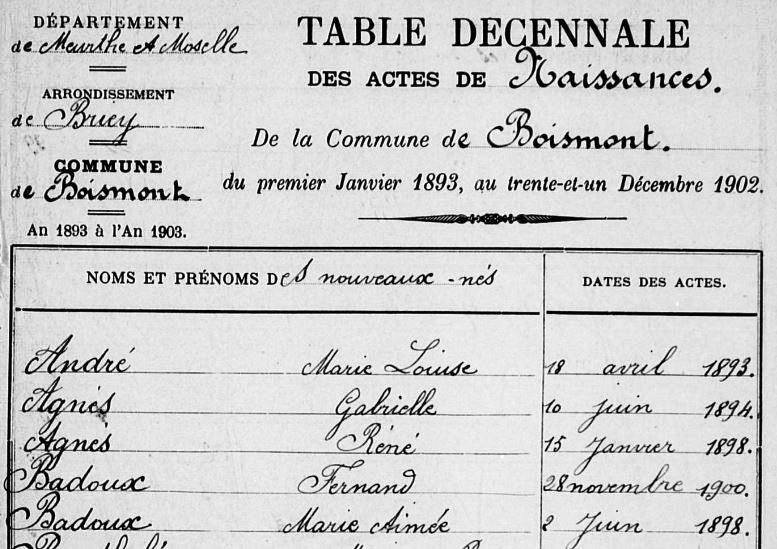 DÉPARTEMENT
de Meurthe et Moselle
ARRONDISSEMENT
de Briey
COMMUNE
de Boismont
An 1893 à l'An 1903.
TABLE DECENNALE
DES ACTES DE Naissances.
De la Commune de Boismont.
du premier Janvier 1893, au trente-et-un Décembre 1902.
NOMS ET PRÉNOMS Des nouveaux-nés DATES DES ACTES.
André Marie Louise 18 avril 1893.
Agnés Gabrielle 10 juin 1894.
Agnés Réné 15 Janvier 1898.
Badoux Fernand 28 novembre 1900.
Badoux Marie Aimée 2 Juin 1898.